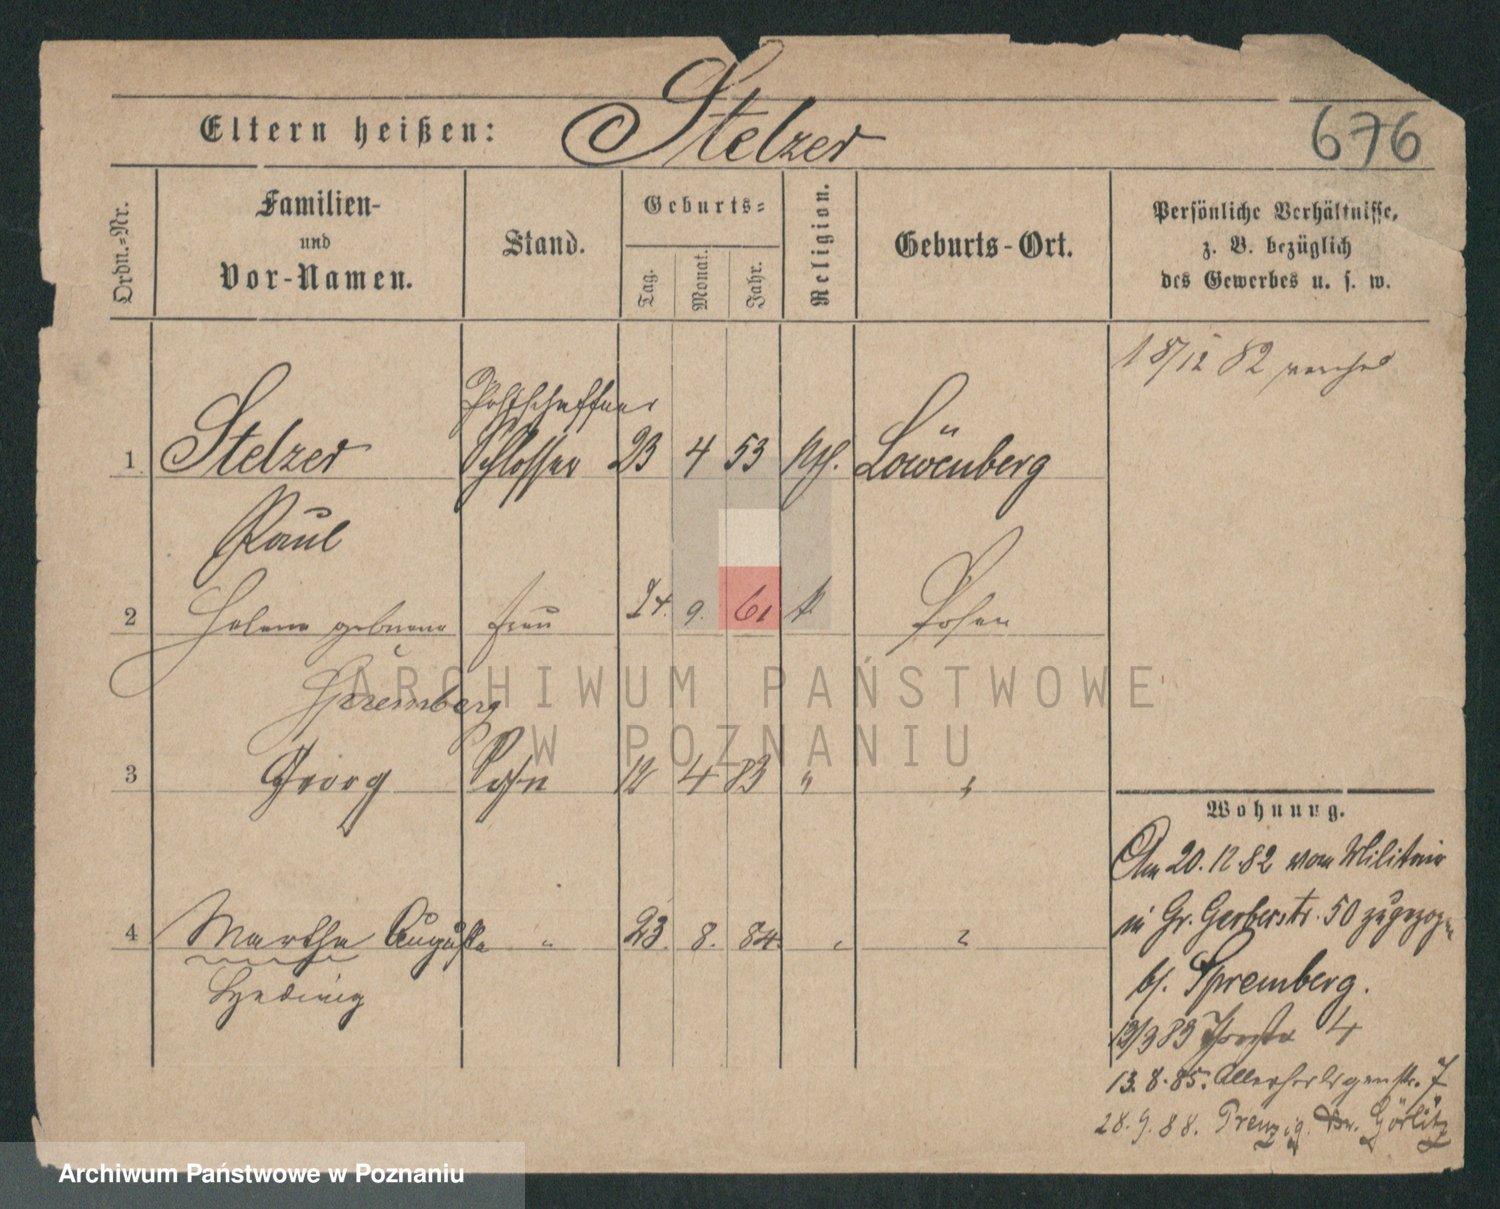 Eltern heißen: Stelzer 676
Ordn.-Nr.
Familien-
und
Vor-Namen.
Stand.
Geburts-
Tag.
Monat.
Jahr.
Religion.
Geburts-Ort.
Persönliche Verhältnisse,
z. B. bezüglich
des Gewerbes u. s. w.
18/12 82
Postschaffner
1 Stelzer Schlosser 23 4 53 Löwenberg
Paul
2 Helene geborene Frau 24. 9. 61 k. Posen
Spremberg
3 Georg Sohn 12 4 83 "
4 Martha Auguste " 23. 8. 84.
Hedwig
Wohnung.
Am 20.12.82 vom Militair
in Gr. Gerberstr. 50 zugezogen
bei Spremberg.
13/3 83 4
13.8.85. Allerheiligenstr. 7
28.9.88. Penzig Kr. Görlitz
ARCHIWUM PAŃSTWOWE
W POZNANIU
Archiwum Państwowe w Poznaniu